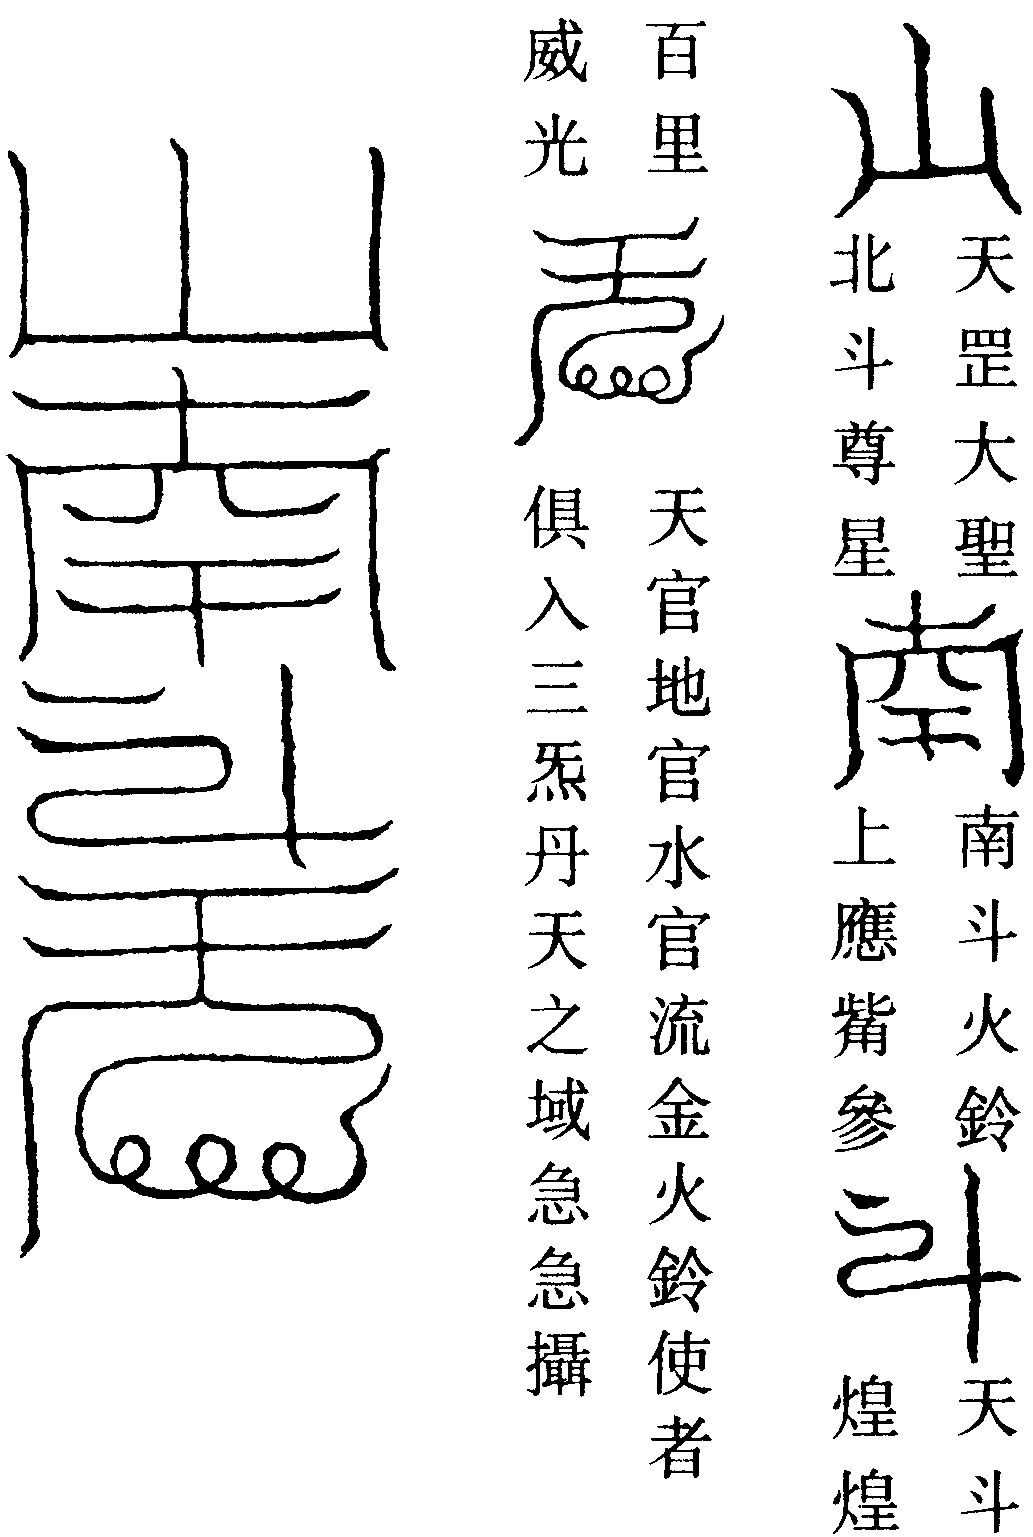 天罡大聖
北斗尊星
南斗火鈴
上應觜參
天斗
煌煌
百里
威光
天官地官水官流金火鈴使者
俱入三炁丹天之域急急攝